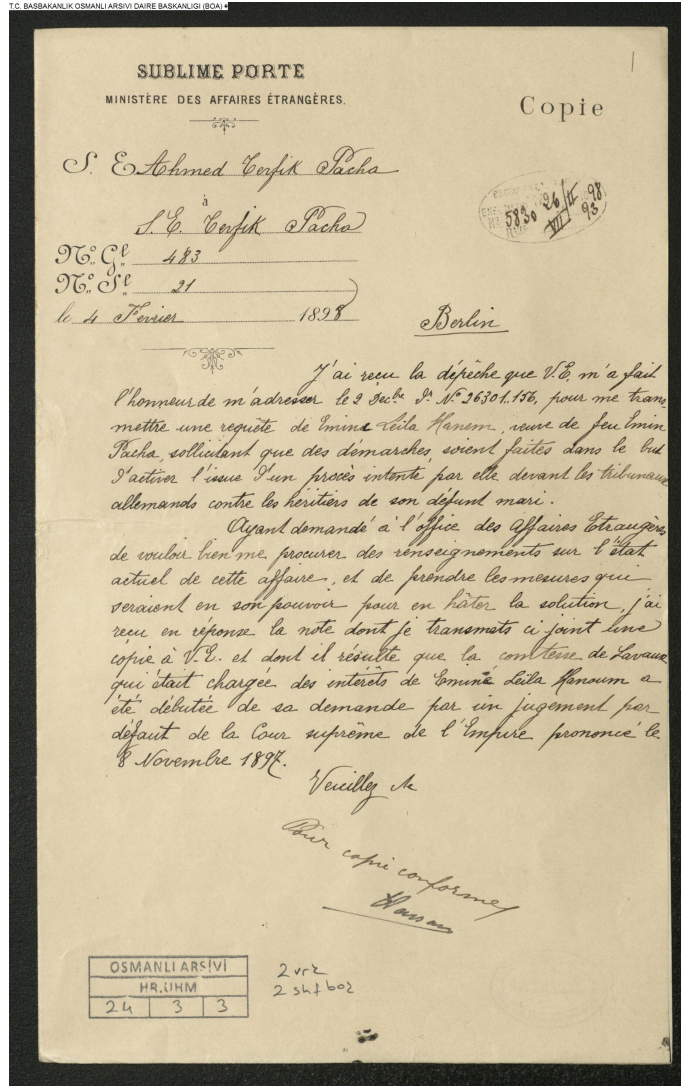 T.C. BASBAKANLIK OSMANLI ARSIVI DAIRE BASKANLIGI (BOA)
1
SUBLIME PORTE
MINISTÈRE DES AFFAIRES ÉTRANGÈRES.
Copie
S. E. Ahmed Tevfik Pacha
à
S. E. Tevfik Pacha
5830 26/II 98
VII 93
No. Gl. 483
No. Sl. 21
le 4 Fevrier 1898
Berlin
J'ai reçu la dépêche que V.E. m'a fait
l'honneur de m'adresser le 2 Decbe Dr No 26301..156, pour me trans
mettre une requête de Emine Leila Hanem, veuve de feu Emin
Pacha, sollicitant que des démarches, soient faites dans le but
d'activer l'issue d'un procès intenté par elle devant les tribunaux
allemands contre les héritiers de son défunt mari.
Ayant demandé à l'office des Affaires Etrangères
de vouloir bien me procurer des renseignements sur l'état
actuel de cette affaire, et de prendre les mesures qui
seraient en son pouvoir pour en hâter la solution, j'ai
reçu en réponse la note dont je transmets ci joint une
copie à V.E. et dont il résulte que la comtesse de Lavaux
qui était chargée des intérêts de Eminé Leila Hanoum a
été débutée de sa demande par un jugement par
défaut de la Cour suprême de l'Empire prononcé le
8 Novembre 1897.
Veuillez &
Pour copie conforme
OSMANLI ARŞİVİ
HR.UHM
24 3 3
2 vrk
2 shf boz